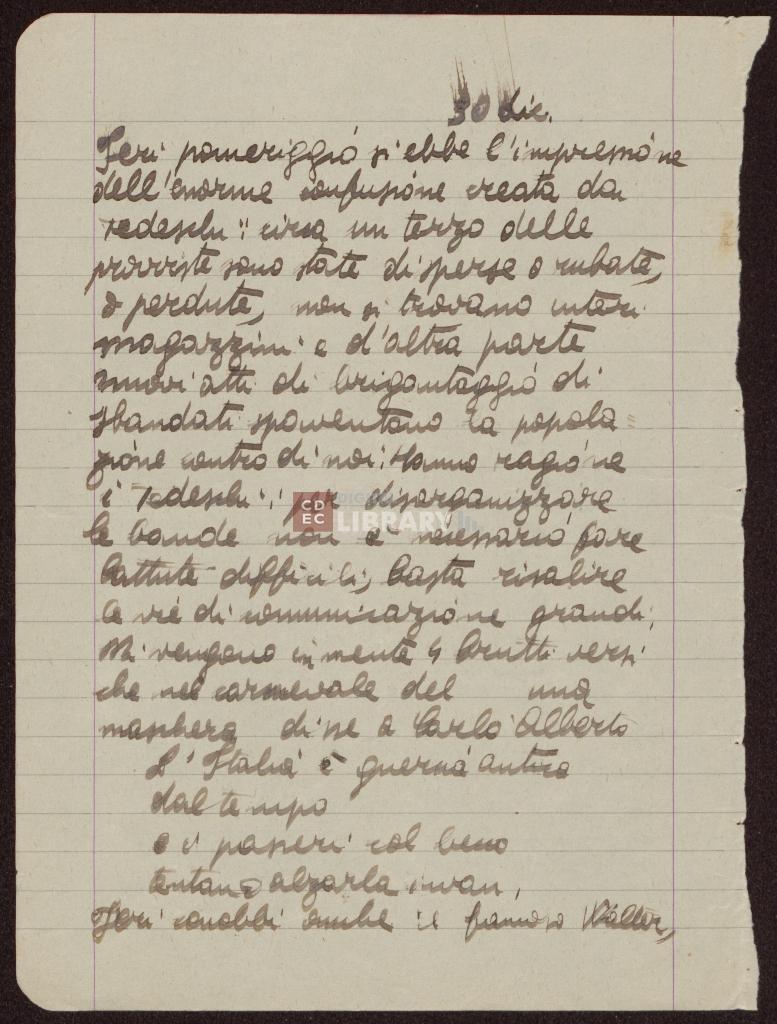 30 dic.
Jeri pomeriggio si ebbe l'impressione
dell'enorme confusione creata dai
Tedeschi: circa un terzo delle
provviste sono state disperse o rubate,
o perdute, non si trovano interi
magazzini e d'altra parte
nuovi atti di brigantaggio di
sbandati spaventano la popola=
zione contro di noi. Hanno ragione
i Tedeschi: per disorganizzare
le bande non è necessario fare
battute difficili, basta risalire
le vie di comunicazione grandi.
Mi vengono in mente 4 brutti versi
che nel carnevale del una
maschera disse a Carlo Alberto
L'Italia è quercia antica
dal tempo
e i passeri col becco
tentano alzarla invan,
Jeri conobbi anche il famoso Walter,
CDEC DIGITAL LIBRARY